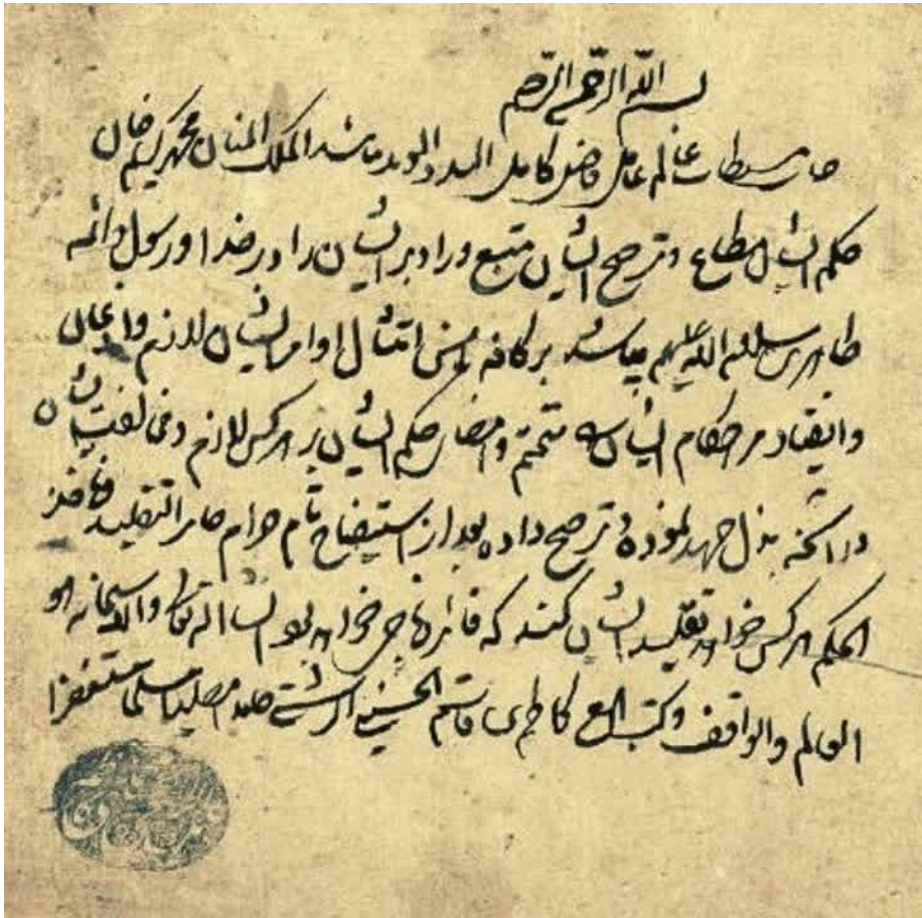 بسم الله الرحمن الرحیم
جناب مستطاب عالم عامل فاضل کامل المسدد والموید بتأیید الملک المنان محمد کریم خان
حکم ایشان مطاع و ترجیح ایشان متبع و راد بر ایشان راد بر خدا و رسول و ائمه
طاهرین سلام الله علیهم میباشد بر کافه ناس امتثال اوامر ایشان لازم و اذعان
و انقیاد مر احکام ایشان متحتم و امضای حکم ایشان بر هر کس لازم و مخالفت ایشان
بذل جهد نموده و ترجیح داده بعد از استیضاح تام حرام جایز التقلید و نافذ
الحکم هر کس خواهد تقلید ایشان کند که فائز و ناجی خواهد بود ان شاء الله تعالی والله سبحانه هو
العالم والواقف وکتب العبد کاظم بن قاسم الحسینی الرشتی حامدا مصلیا مسلما مستغفرا